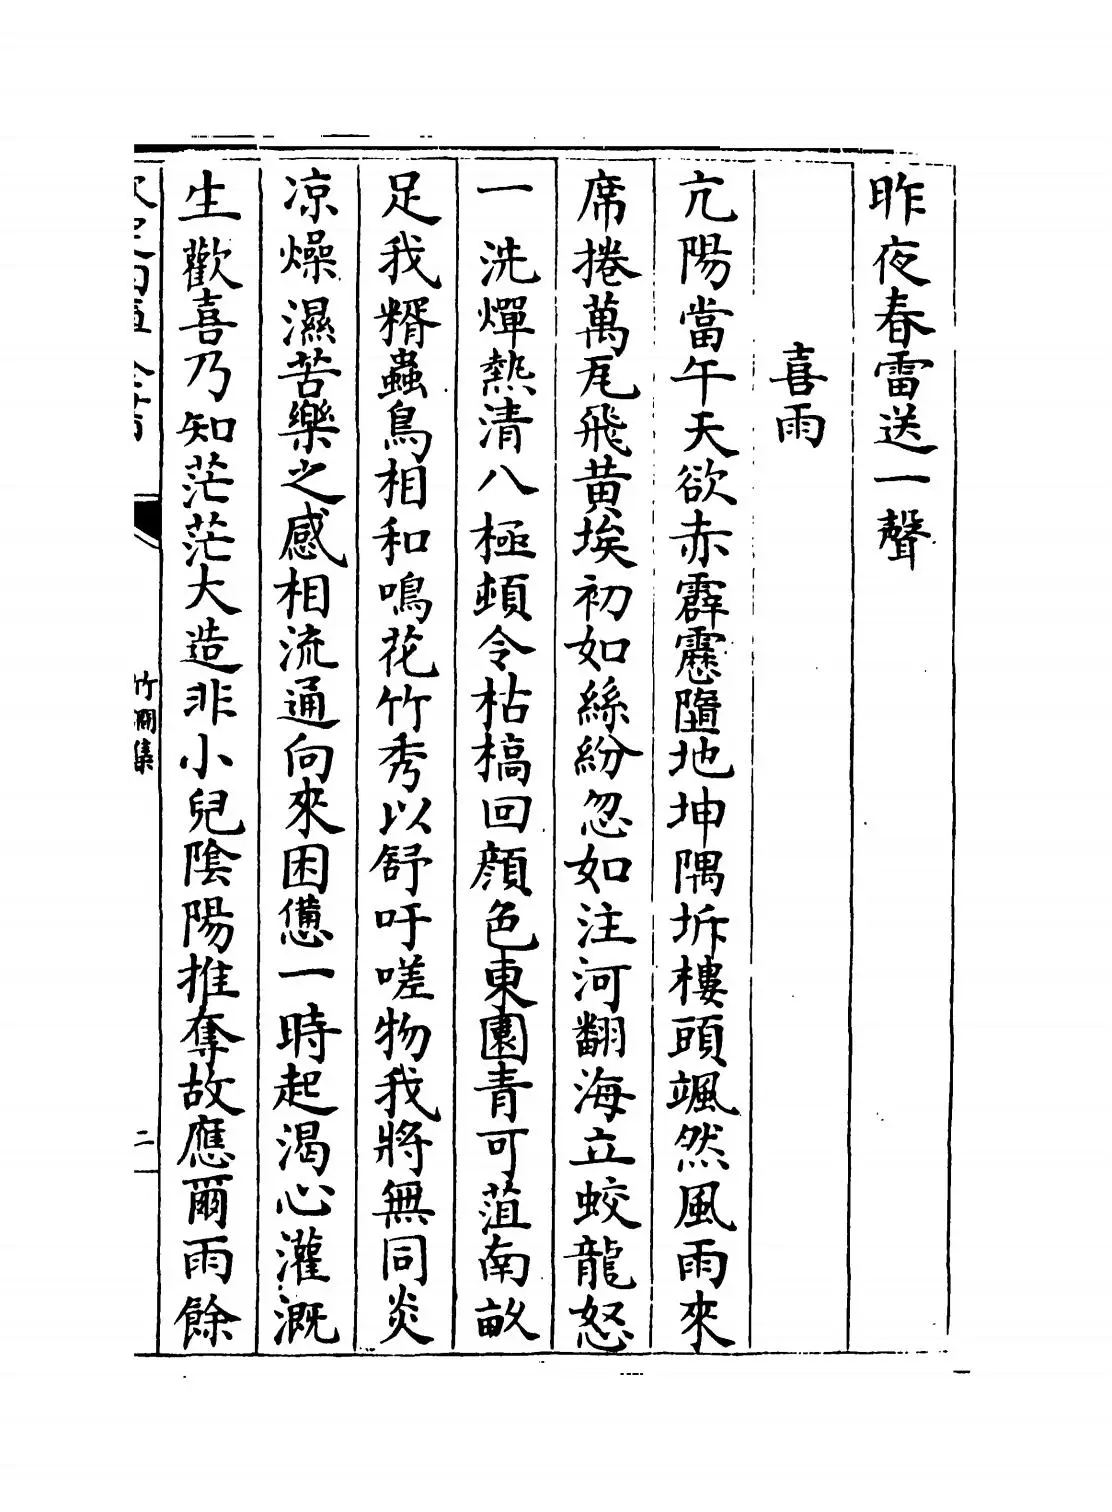 昨夜春雷送一聲
喜雨
亢陽當午天欲赤霹靂墮地坤隅坼樓頭颯然風雨來
席捲萬瓦飛黄埃初如絲紛忽如注河翻海立蛟龍怒
一洗燀熱清八極頓令枯槁回顔色東園青可葅南畝
足我糈蟲鳥相和鳴花竹秀以舒吁嗟物我將無同炎
凉燥濕苦樂之感相流通向來困憊一時起渴心灌溉
生歡喜乃知茫茫大造非小兒陰陽推奪故應爾雨餘
竹㵎集
二